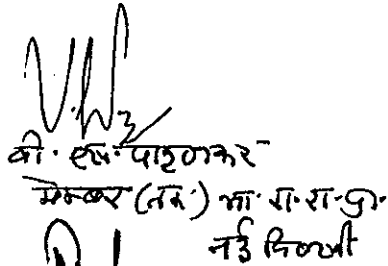 वी. एस. पाटणकर
मेम्बर (तक.) भा. रा. रा. प्रा.
नई दिल्ली